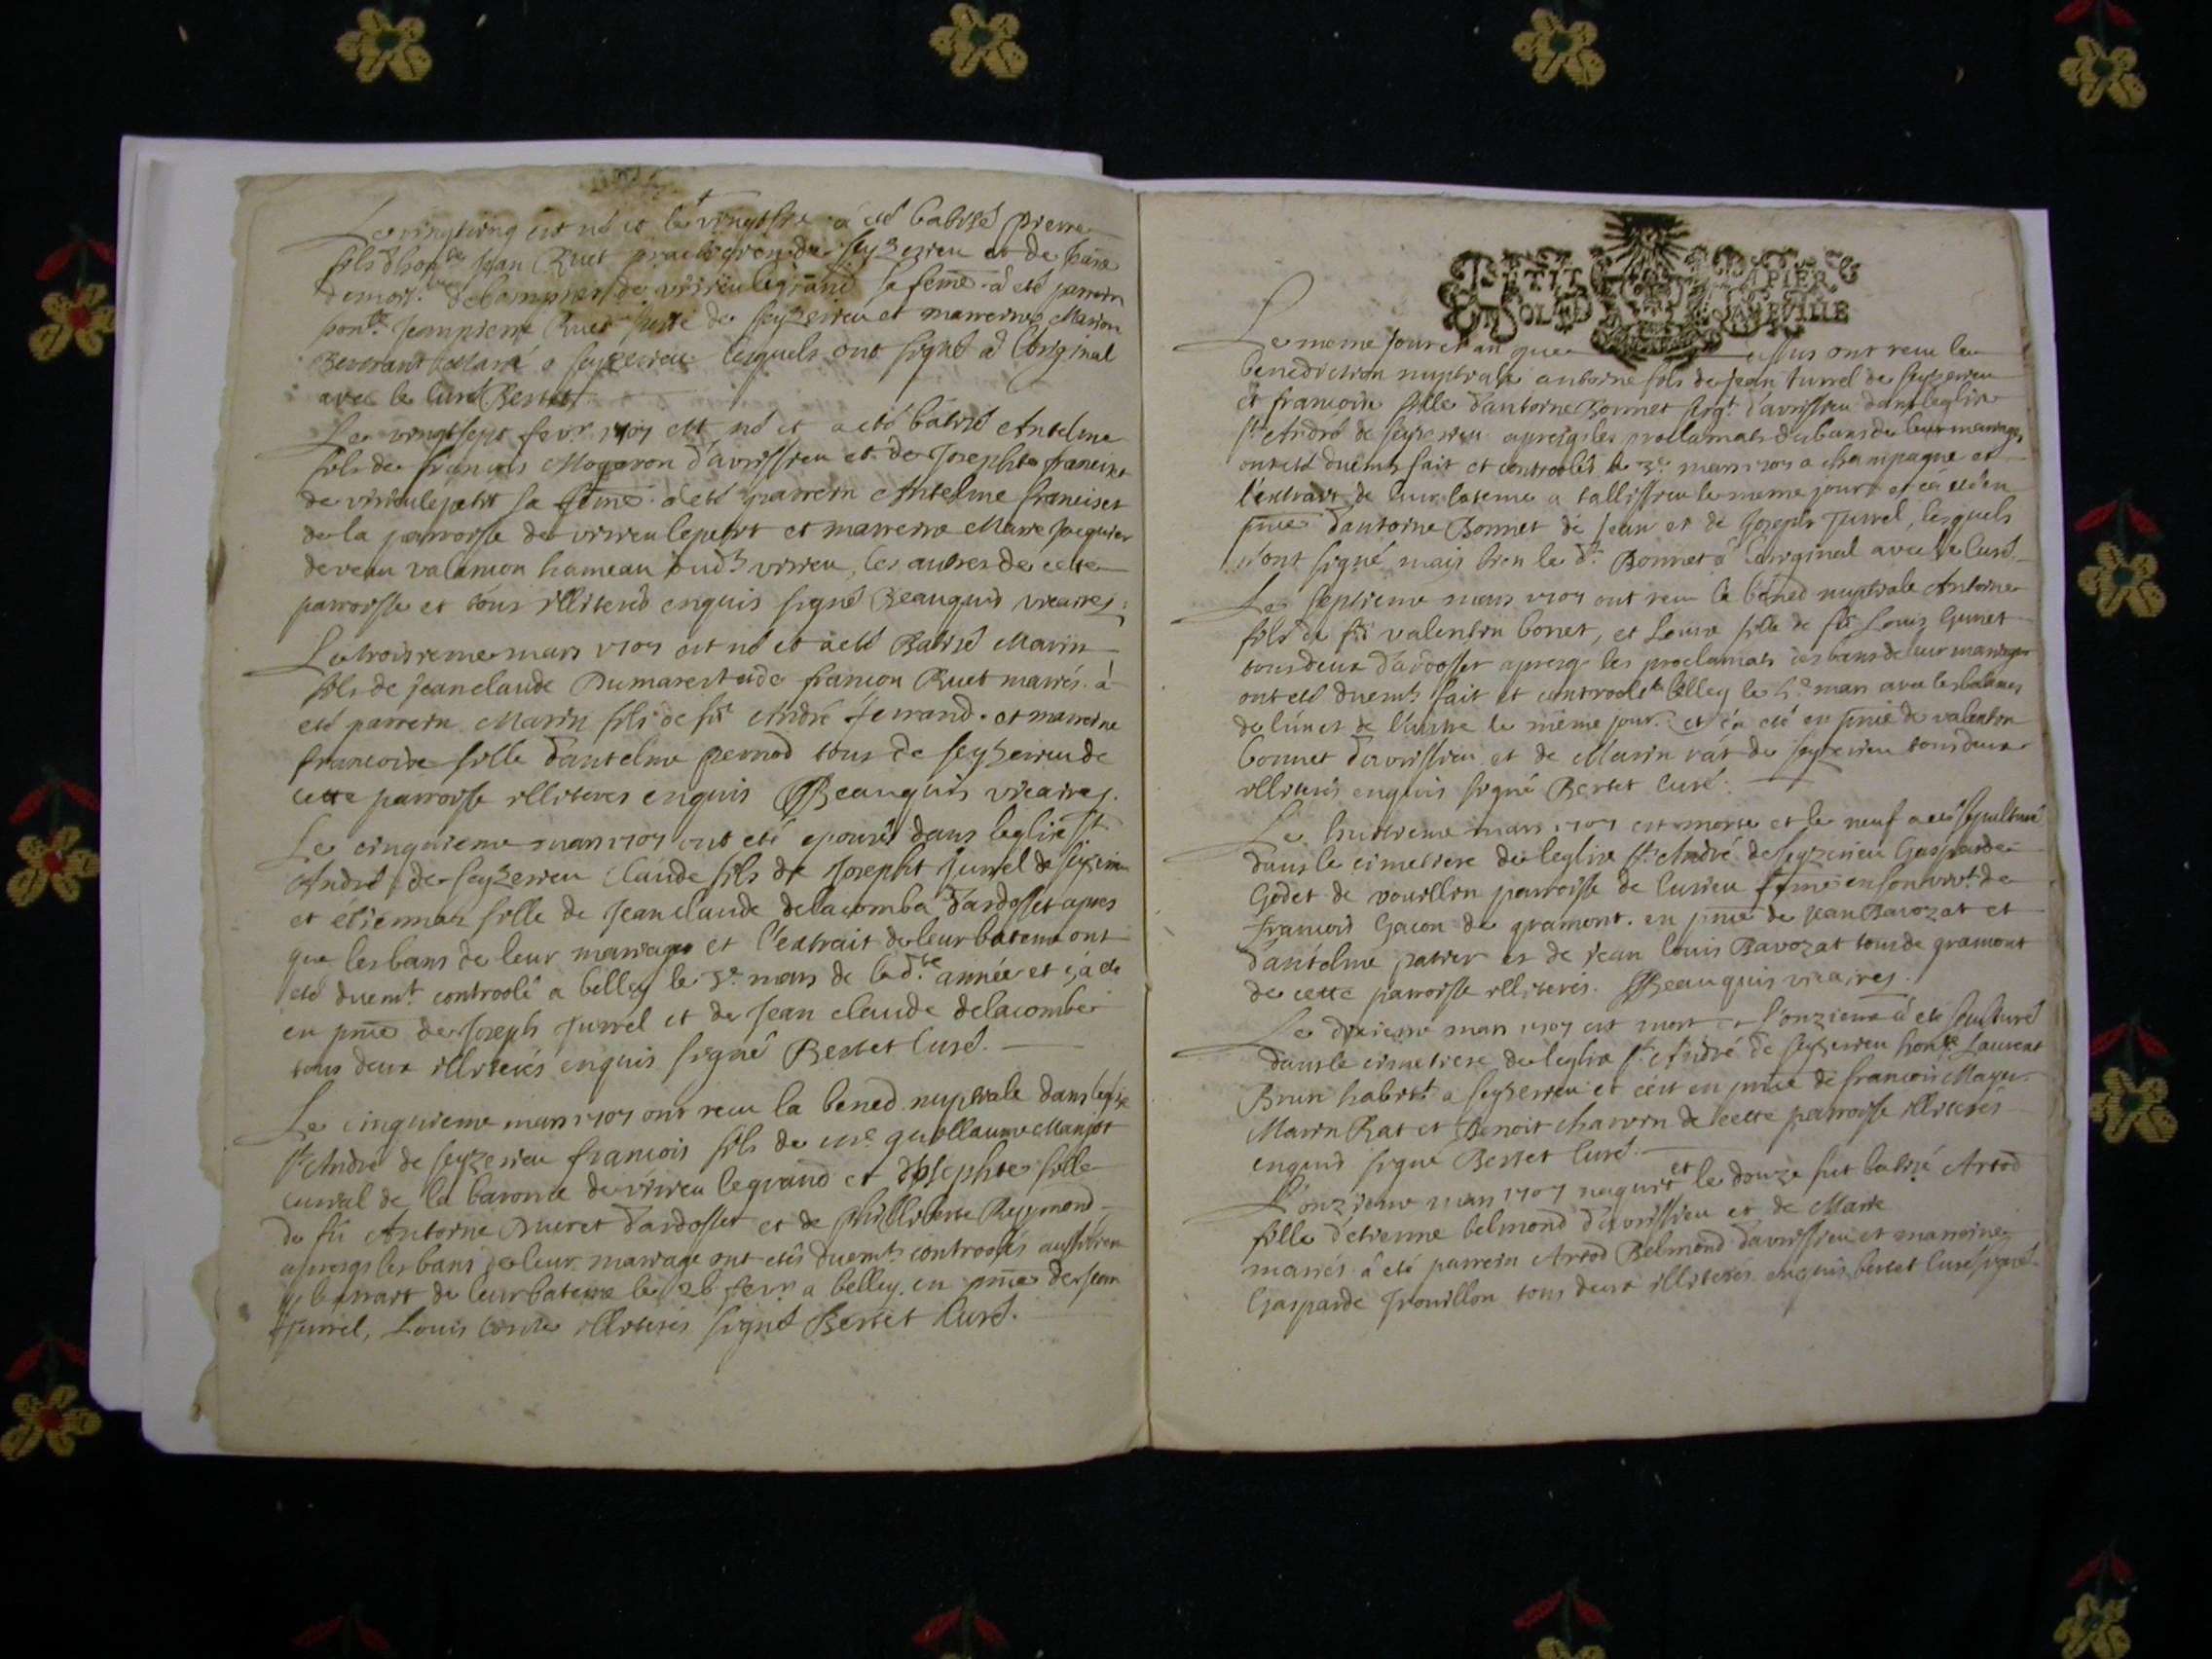 Le vingtcinq est né et le vingtsix a eté batisé pierre
fils d'hon.ble Jean Ruet de seyzerieu et de
de virieu le grand sa feme a eté parrein
hon.ble Jeanpierre Ruet de seyzerieu et marreine Marion
a seyzerieu lesquels ont signé a l'original
avec le Curé Bertet
Le vingtsept fevr. 1707 est né et a eté batisé Antelme
fils de francois Mogeron d'avrissieu et de Josephte franciset
de virieu le petit sa feme a eté parrein Antelme franciset
de la parroisse de virieu le petit et marreine Marie Jacquier
de hameau dud.t virieu, les autres de cette
parroisse et tous illiterés enquis signé Beauquis vicaire
Le troisieme mars 1707 est né et a eté Batisé Marin
fils de Jean claude Dumarest et de francon Ruet mariés a
eté parrein Marin fils de fû André ferrand et marreine
francoise fille d'antelme pernod tous de seyzerieu de
cette parroisse illiterés enquis Beauquis vicaire
Le cinquieme mars 1707 ont eté epousés dans leglise St
André de seyzerieu Claude fils de Joseph Jurrel de seyzerieu
et etiennaz fille de Jean claude delacomba d'ardosset apres
que les bans de leur mariage et l'extrait de leur bateme ont
eté duem.t controolé a belley le 3.e mars de lad.te année et ç'a eté
en pnce de Joseph Jurrel et de Jean claude delacombe
tous deux illiterés enquis signé Bertet Curé.
Le cinquieme mars 1707 ont receu la bened. nuptiale dans leglise
St André de seyzerieu francois fils de guillaume Manjot
curial de la baronie de virieu le grand et Josephte fille
de fû Antoine d'ardosset et de philliberte Reymond
apres q. les bans de leur mariage ont etés duem.t controolés aussi bien
q. l'extrait de leur bateme le 26 fevr. a belley. en pnce de Jean
Jurrel, Louis illiterés signé Bertet Curé.
PETIT PAPIER
UN SOL LA FEUILLE
Le meme jour et an que dessus ont receu la
benediction nuptiale antoine fils de Jean Jurrel de seyzerieu
et francoise fille d'antoine Bonnet d'avrissieu dans leglise
St André de seyzerieu apres q. les proclamats des bans de leur mariage
ont eté duem.t fait et controolés le 3.e mars 1707 a champagne et
l'extrait de leur bateme a tallissieu le meme jour et ç'a eté en
pnce d'antoine Bonnet de Jean et de Joseph Jurrel, lesquels
n'ont signé mais bien le d.t Bonnet a l'original avec le Curé
Le septieme mars 1707 ont receu la bened nuptiale Antoine
fils de fû valentin bonet, et Louise fille de fû Louis Gunet
tous deux d'ardosset apres q. les proclamats des bans de leur mariage
ont eté duem.t fait et controolés a belley le 5.e mars avec les batemes
de l'un et de l'autre le même jour. et ç'a eté en pnce de valentin
bonnet d'avrissieu et de Marin rat de seyzerieu tous deux
illiterés enquis signé Bertet Curé.
Le huitieme mars 1707 est morte et le neuf a eté sepulturé
dans le cimetiere de leglise St André de seyzerieu Gasparde
Godet de vouillin parroisse de lusieu feme en son viv.t de
francois Gacon de gramont. en pnce de Jean Bavozat et
d'antelme patier et de Jean Louis Bavozat tous de gramont
de cette parroisse illiterés. Beauquis vicaire.
Le dixieme mars 1707 est mort et l'onzieme a eté sepulturé
dans le cimetiere de leglise St André de seyzerieu hon.ble Laurent
Brun habit.t a seyzerieu et c'est en pnce de francois
Marin Rat et Benoit chavin de cette parroisse illiterés
enquis signé Bertet Curé.
L'onzieme mars 1707 naquit et le douze fut batisé Artod
fille d'etienne belmond d'avrissieu et de Marie
mariés a eté parrein Artod Belmond d'avrissieu et marreine
Gasparde Trouillon tous deux illiterés enquis bertet Curé signé